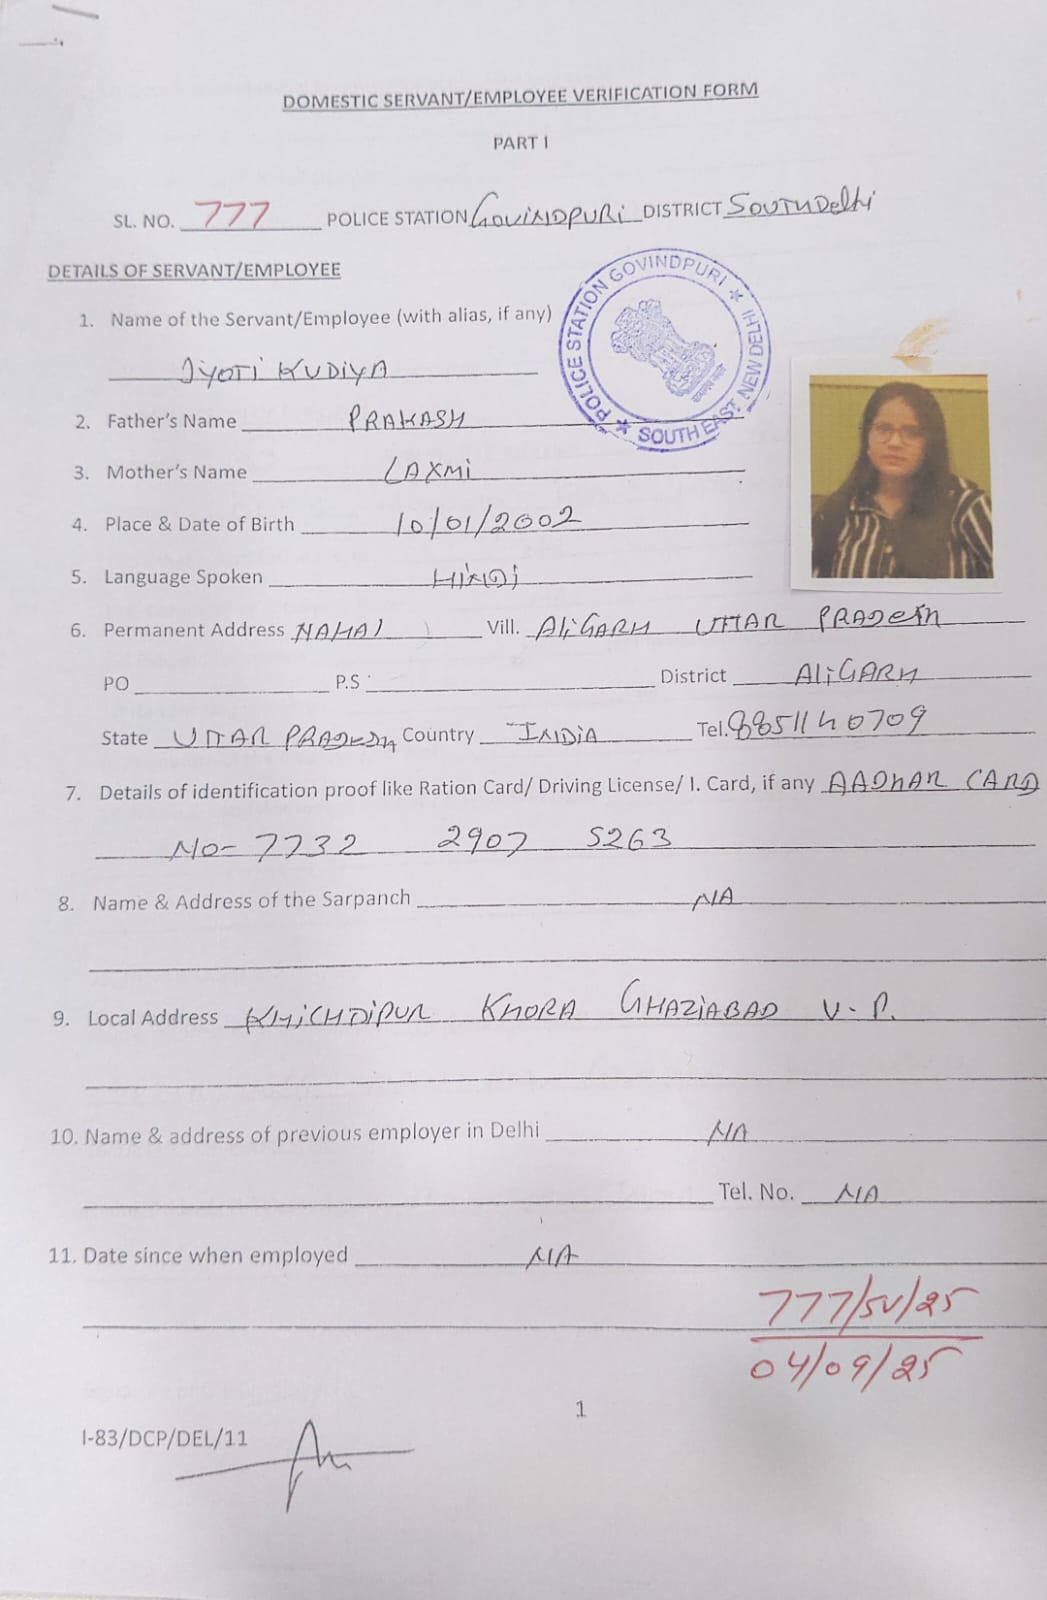 DOMESTIC SERVANT/EMPLOYEE VERIFICATION FORM
PART I
SL. NO. 777 POLICE STATION GOVINDPURI DISTRICT SOUTH Delhi
DETAILS OF SERVANT/EMPLOYEE
POLICE STATION GOVINDPURI ★ SOUTH EAST NEW DELHI ★
1. Name of the Servant/Employee (with alias, if any)
JYOTI KUDIYA
2. Father's Name PRAKASH
3. Mother's Name LAXMI
4. Place & Date of Birth 10/01/2002
5. Language Spoken HINDI
6. Permanent Address Vill. ALIGARH UTTAR PRADESH
PO P.S District ALIGARH
State UTTAR PRADESH Country INDIA Tel. 8851140709
7. Details of identification proof like Ration Card/ Driving License/ I. Card, if any AADHAR CARD
NO- 7732 2907 5263
8. Name & Address of the Sarpanch NA
9. Local Address KHICHDIPUR KHORA GHAZIABAD U.P.
10. Name & address of previous employer in Delhi NA
Tel. No. NA
11. Date since when employed NA
777/SV/25
04/09/25
1
I-83/DCP/DEL/11